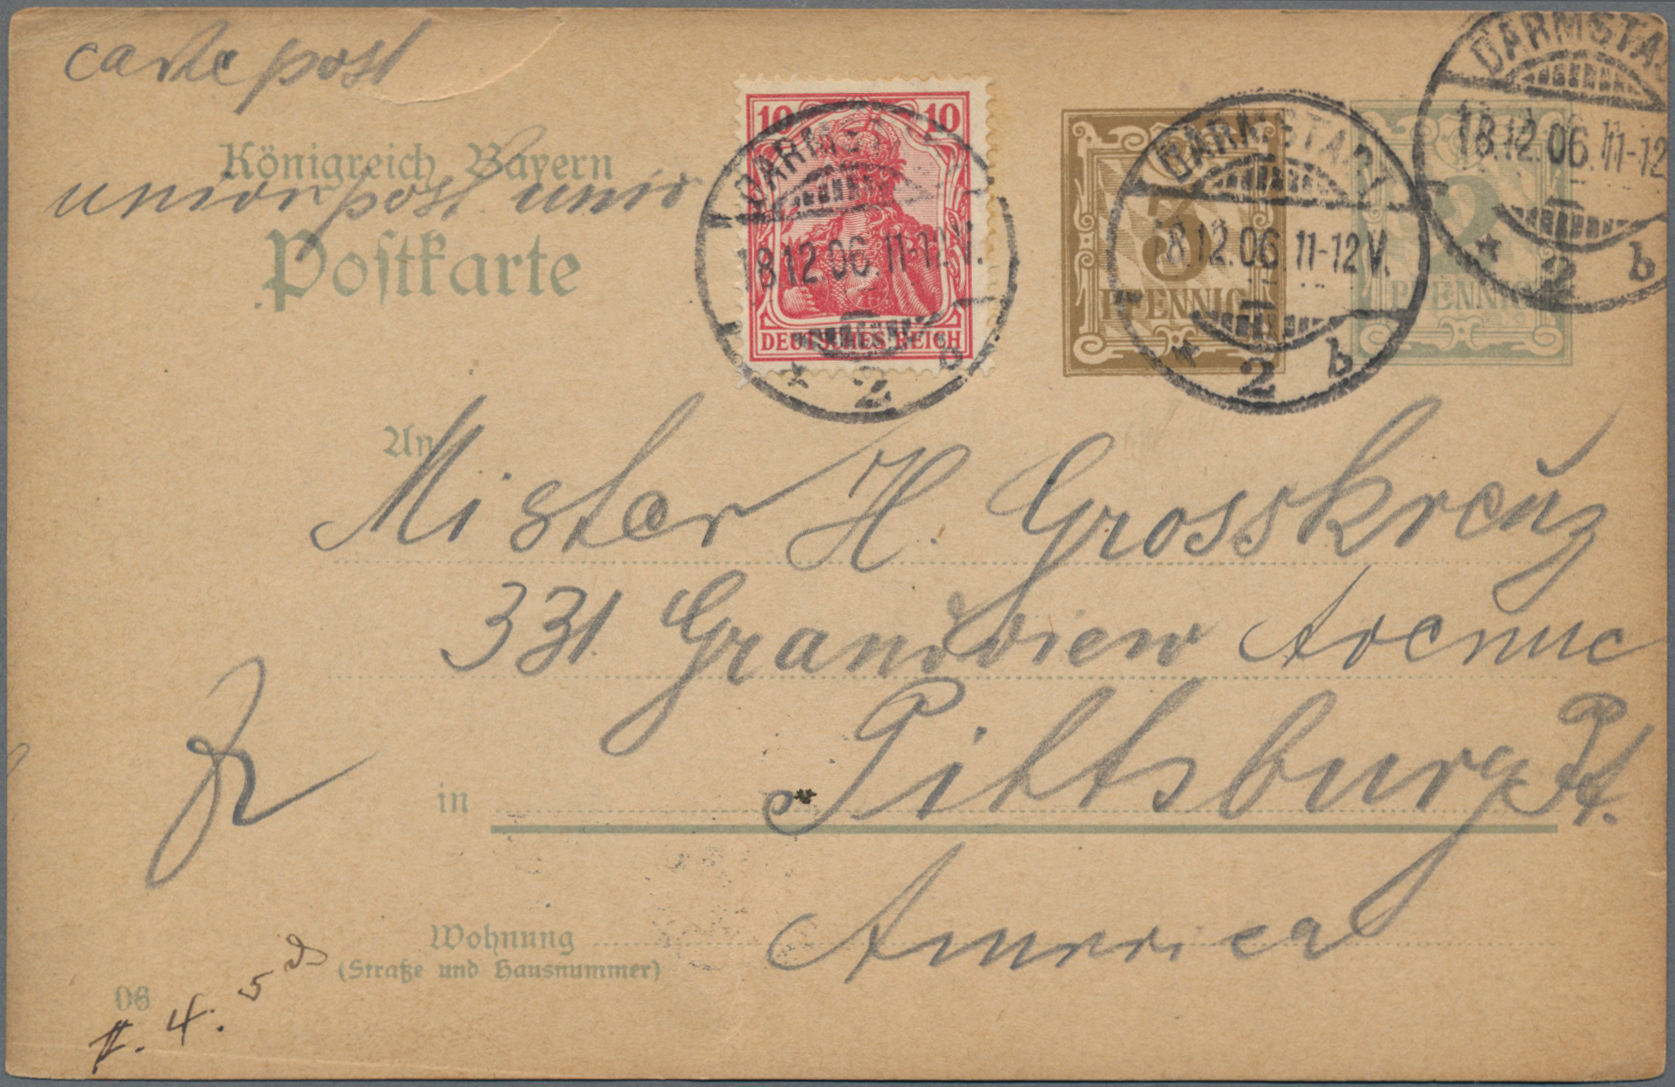 carte post
Königreich Bayern
union post unio
Postkarte
10 10
DEUTSCHES REICH
DARMSTADT
18.12.06. 11-12V.
* 2 b
3
PFENNIG
DARMSTADT
18.12.06. 11-12V.
* 2 b
2
PFENNIG
DARMSTA
18.12.06. 11-12
* 2 b
An
Mister H. Grosskreuz
331 Grandview Avenue
in Pittsburg Pt.
America
Wohnung
(Straße und Hausnummer)
06
II. 4. 5